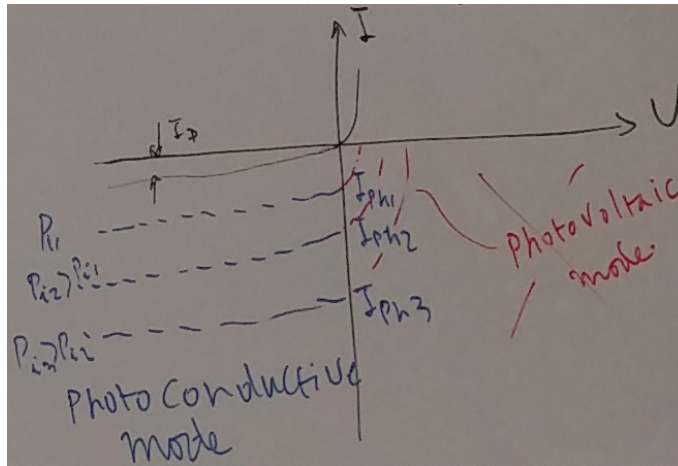 I
U
I_D
I_ph1
P_i1
I_ph2
P_i2>P_i1
I_ph3
P_i3>P_i2
photovoltaic
mode.
photoconductive
mode